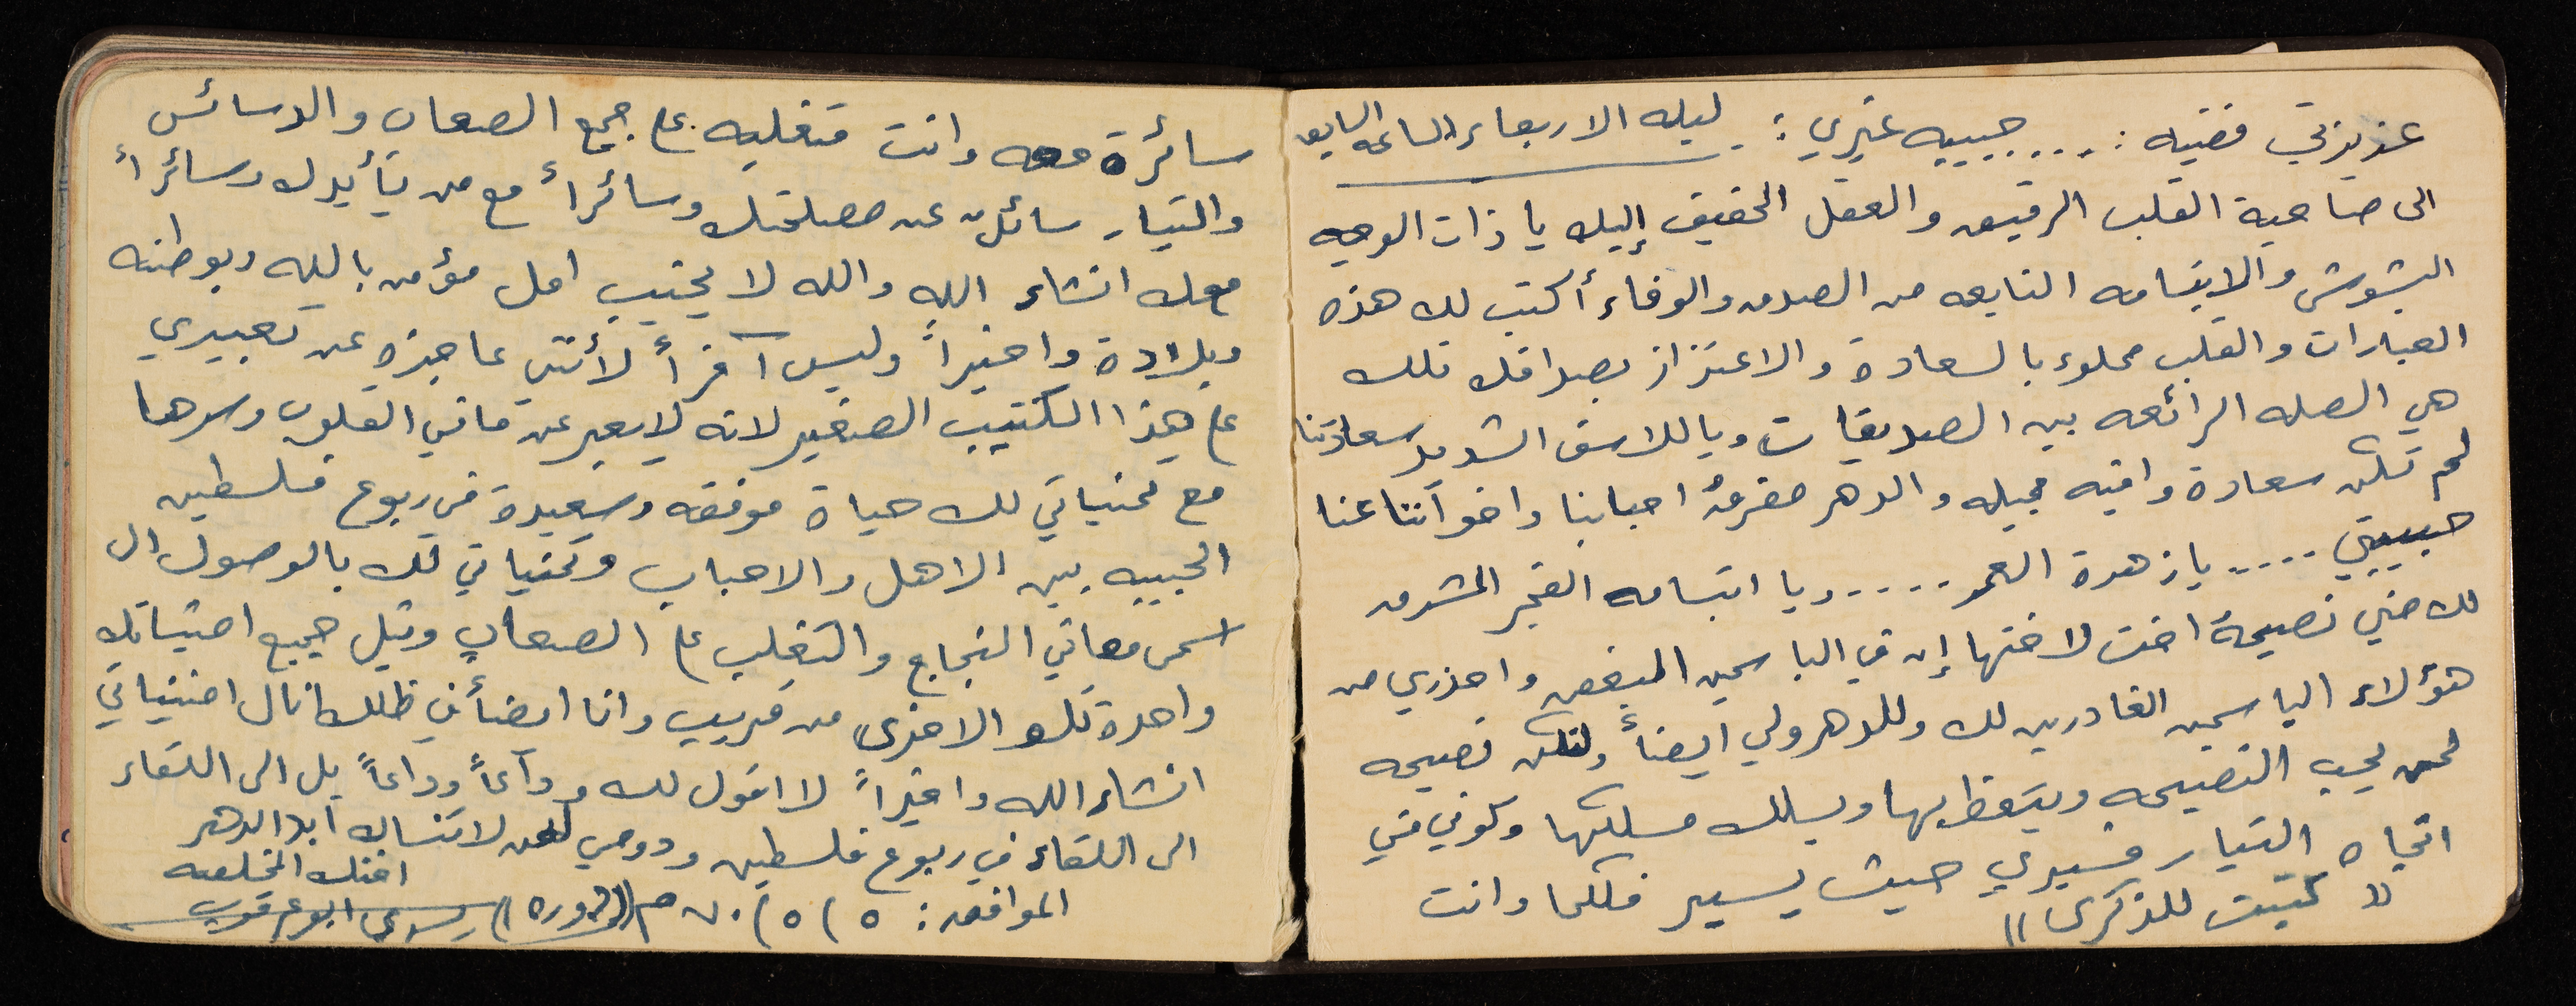 عزيزتي فضيه : .... حبيبيه غيري : ليله الاربعاء الساعه السابعه
الى صاحبة القلب الرقيق والعقل الحقيق إليك يا ذات الوجه
البشوش والابتسامه النابعه من الصدق والوفاء أكتب لك هذه
العبارات والقلب مملوء بالسعادة والاعتزاز بصداقتك تلك
هي الصله الرائعه بين الصديقات ويا للاسف الشديد سعادتنا
لم تكن سعادة وافيه جميله والدهر مفرقهُ احبابنا واخواننا عنا
حبيبتي .... يا زهرة العمر ..... ويا ابتسامه الفجر المشرق
لك مني نصيحهُ اخت لاختها إن في الياسمين البغض واحذري من
هؤلاء الياسمين الغادرين لك وللدهر ولي ايضاً ولتكن نصيحه
لمن يحب النصيحه ويتعظ بها ويسلك مسلكها وكوني مني
اتجاه التيار فسيري حيث يسير فكلما وانت
" كتبت للذكرى "
سائرة معه وانت متغلبه على جميع الصعاب والدسائس
والتيار سائلٌ عن مصلحتك وسائراً مع من يتأيدك وسائراً
معك انشاء الله والله لا يخيب امل مؤمن بالله وبوطنه
وبلاده واخيراً وليس آخراً لأنني عاجزه عن تعبيري
على هذا الكتيب الصغير لانه لا يعبر عن ما في القلوب وسرها
مع تمنياتي لك حياة موفقه وسعيدة في ربوع فلسطين
الحبيبه بين الاهل والاحباب وتمنياتي لك بالوصول الى
اسمى معاني النجاح والتغلب على الصعاب ونيل جميع امنياتك
واحدة تلو الاخرى من قريب وانا ايضاً في ظلك انال امنياتي
انشاء الله واخيراً لا اقول لك وداعاً وداعاً بل الى اللقاء
الى اللقاء في ربوع فلسطين ودومي لمن لا تنساك ابد الدهر
اختك المخلصه
الموافق : ٥ / ٥ / ٧٠ م